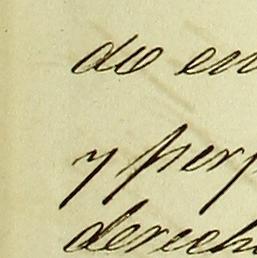 do en
y perp
derech